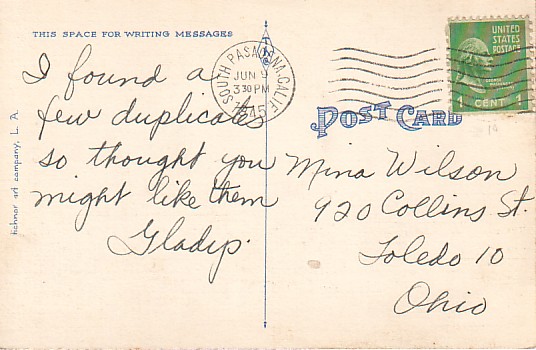 THIS SPACE FOR WRITING MESSAGES
I found a
few duplicates
so thought you
might like them
Gladys.
SOUTH PASADENA, CALIF.
JUN 9
3 30 PM
1945
UNITED
STATES
POSTAGE
1 CENT 1
POST CARD
Mina Wilson
920 Collins St.
Toledo 10
Ohio
art company, L. A.